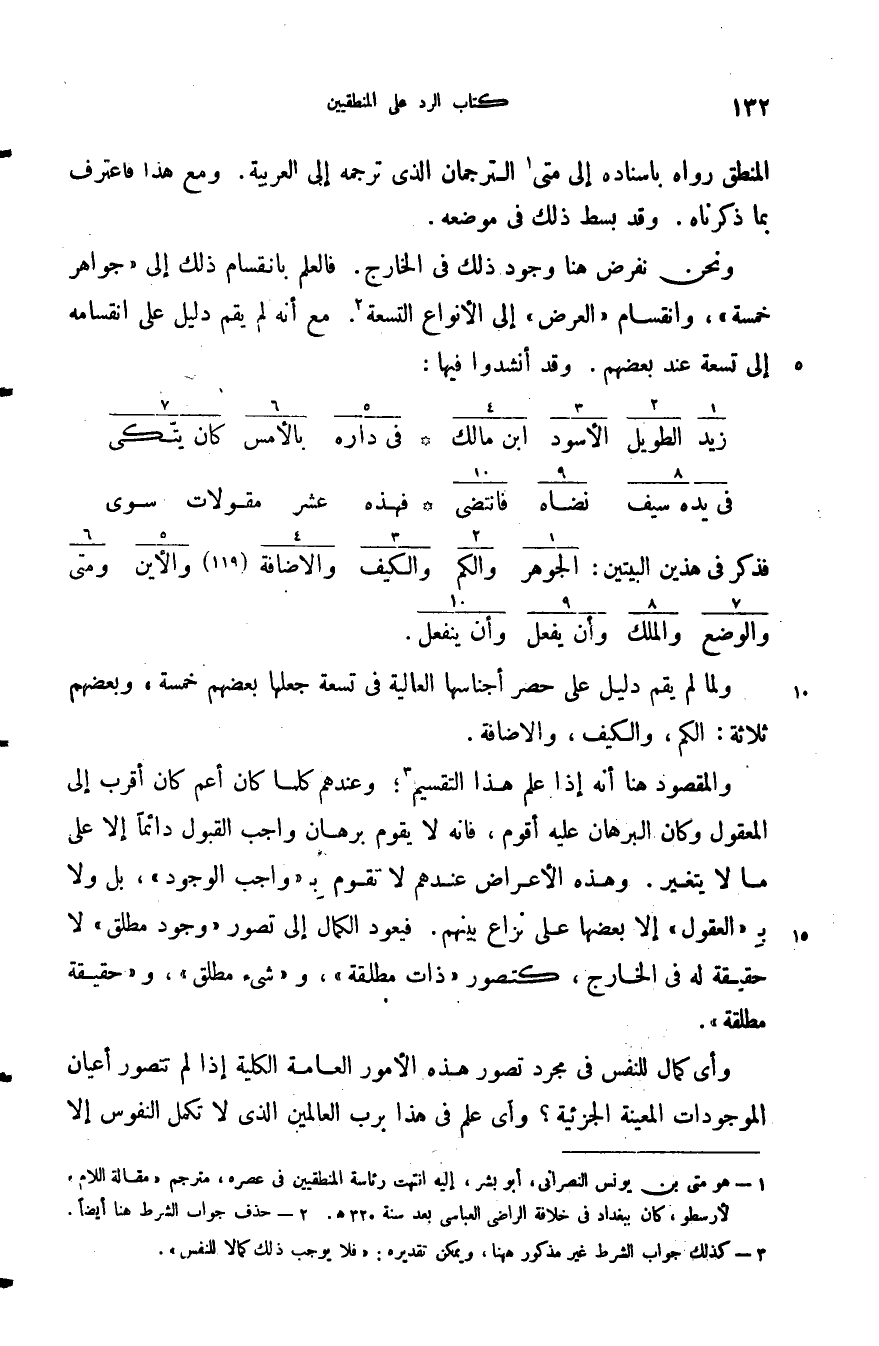 ١٣٢ كتاب الرد على المنطقيين
المنطق رواه باسناده إلى متى١ الترجمان الذى ترجمه إلى العربية. ومع هذا فاعترف
بما ذكرناه. وقد بسط ذلك فى موضعه.
ونحن نفرض هنا وجود ذلك فى الخارج. فالعلم بانقسام ذلك إلى «جواهر
خمسة»، وانقسام «العرض» إلى الأنواع التسعة٢. مع أنه لم يقم دليل على انقسامه
٥ إلى تسعة عند بعضهم. وقد أنشدوا فيها:
١ ٢ ٣ ٤ ٥ ٦ ٧
زيد الطويل الأسود ابن مالك * فى داره بالأمس كان يتكى
٨ ٩ ١٠
فى يده سيف نضاه فانتضى * فهذه عشر مقولات سوى
١ ٢ ٣ ٤ ٥ ٦
فذكر فى هذين البيتين: الجوهر والكم والكيف والاضافة (١١٩) والأين ومتى
٧ ٨ ٩ ١٠
والوضع والملك وأن يفعل وأن ينفعل.
١٠ ولما لم يقم دليل على حصر أجناسها العالية فى تسعة جعلها بعضهم خمسة، وبعضهم
ثلاثة: الكم، والكيف، والاضافة.
والمقصود هنا أنه إذا علم هذا التقسيم٣؛ وعندهم كلما كان أعم كان أقرب إلى
المعقول وكان البرهان عليه أقوم، فانه لا يقوم برهان واجب القبول دائماً إلا على
ما لا يتغير. وهذه الأعراض عندهم لا تقوم بـ «واجب الوجود»، بل ولا
١٥ بـ «العقول» إلا بعضها على نزاع بينهم. فيعود الكمال إلى تصور «وجود مطلق» لا
حقيقة له فى الخارج، كتصور «ذات مطلقة»، و «شىء مطلق»، و «حقيقة
مطلقة».
وأى كمال للنفس فى مجرد تصور هذه الأمور العامة الكلية إذا لم تتصور أعيان
الموجودات المعينة الجزئية؟ وأى علم فى هذا برب العالمين الذى لا تكمل النفوس إلا
١ – هو متى بن يونس النصرانى، أبو بشر، إليه انتهت رئاسة المنطقيين فى عصره، مترجم «مقالة اللام»
لأرسطو، كان ببغداد فى خلافة الراضى العباسى بعد سنة ٣٢٠ ه. ٢ – حذف جواب الشرط هنا أيضاً.
٣ – كذلك جواب الشرط غير مذكور ههنا، ويمكن تقديره: «فلا يوجب ذلك كمالا للنفس».